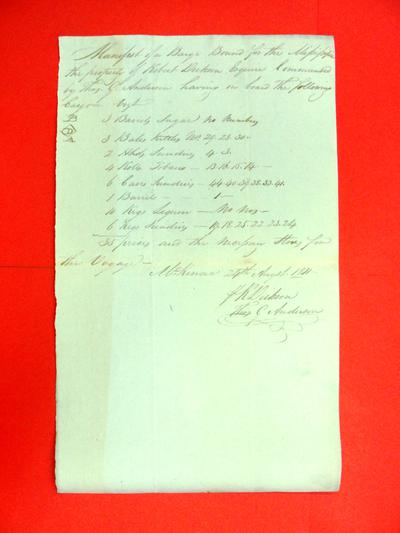 Manifest of a Barge Bound for the
the property of Robert Dickson Esquire Commanded
by Thos. G. Anderson having on board the following
Cargoe vizt
B 3 Barrels Sugar no Numbers
D 3 Bales Kettles No. 29. 23. 30
A 2 Hhds Sundries 4. 3.
4 Rolls Tobacco — 13. 16. 15. 14 —
6 Cases Sundries — 44. 40. 39. 38. 33. 41.
1 Barrel — 1 —
10 Kegs Liquor — No Nos —
6 Kegs Sundries — 19. 18. 25. 22. 23. 24
35 pieces and the Stores for
the Voyage —
24th August
R Dickson
Thos G Anderson